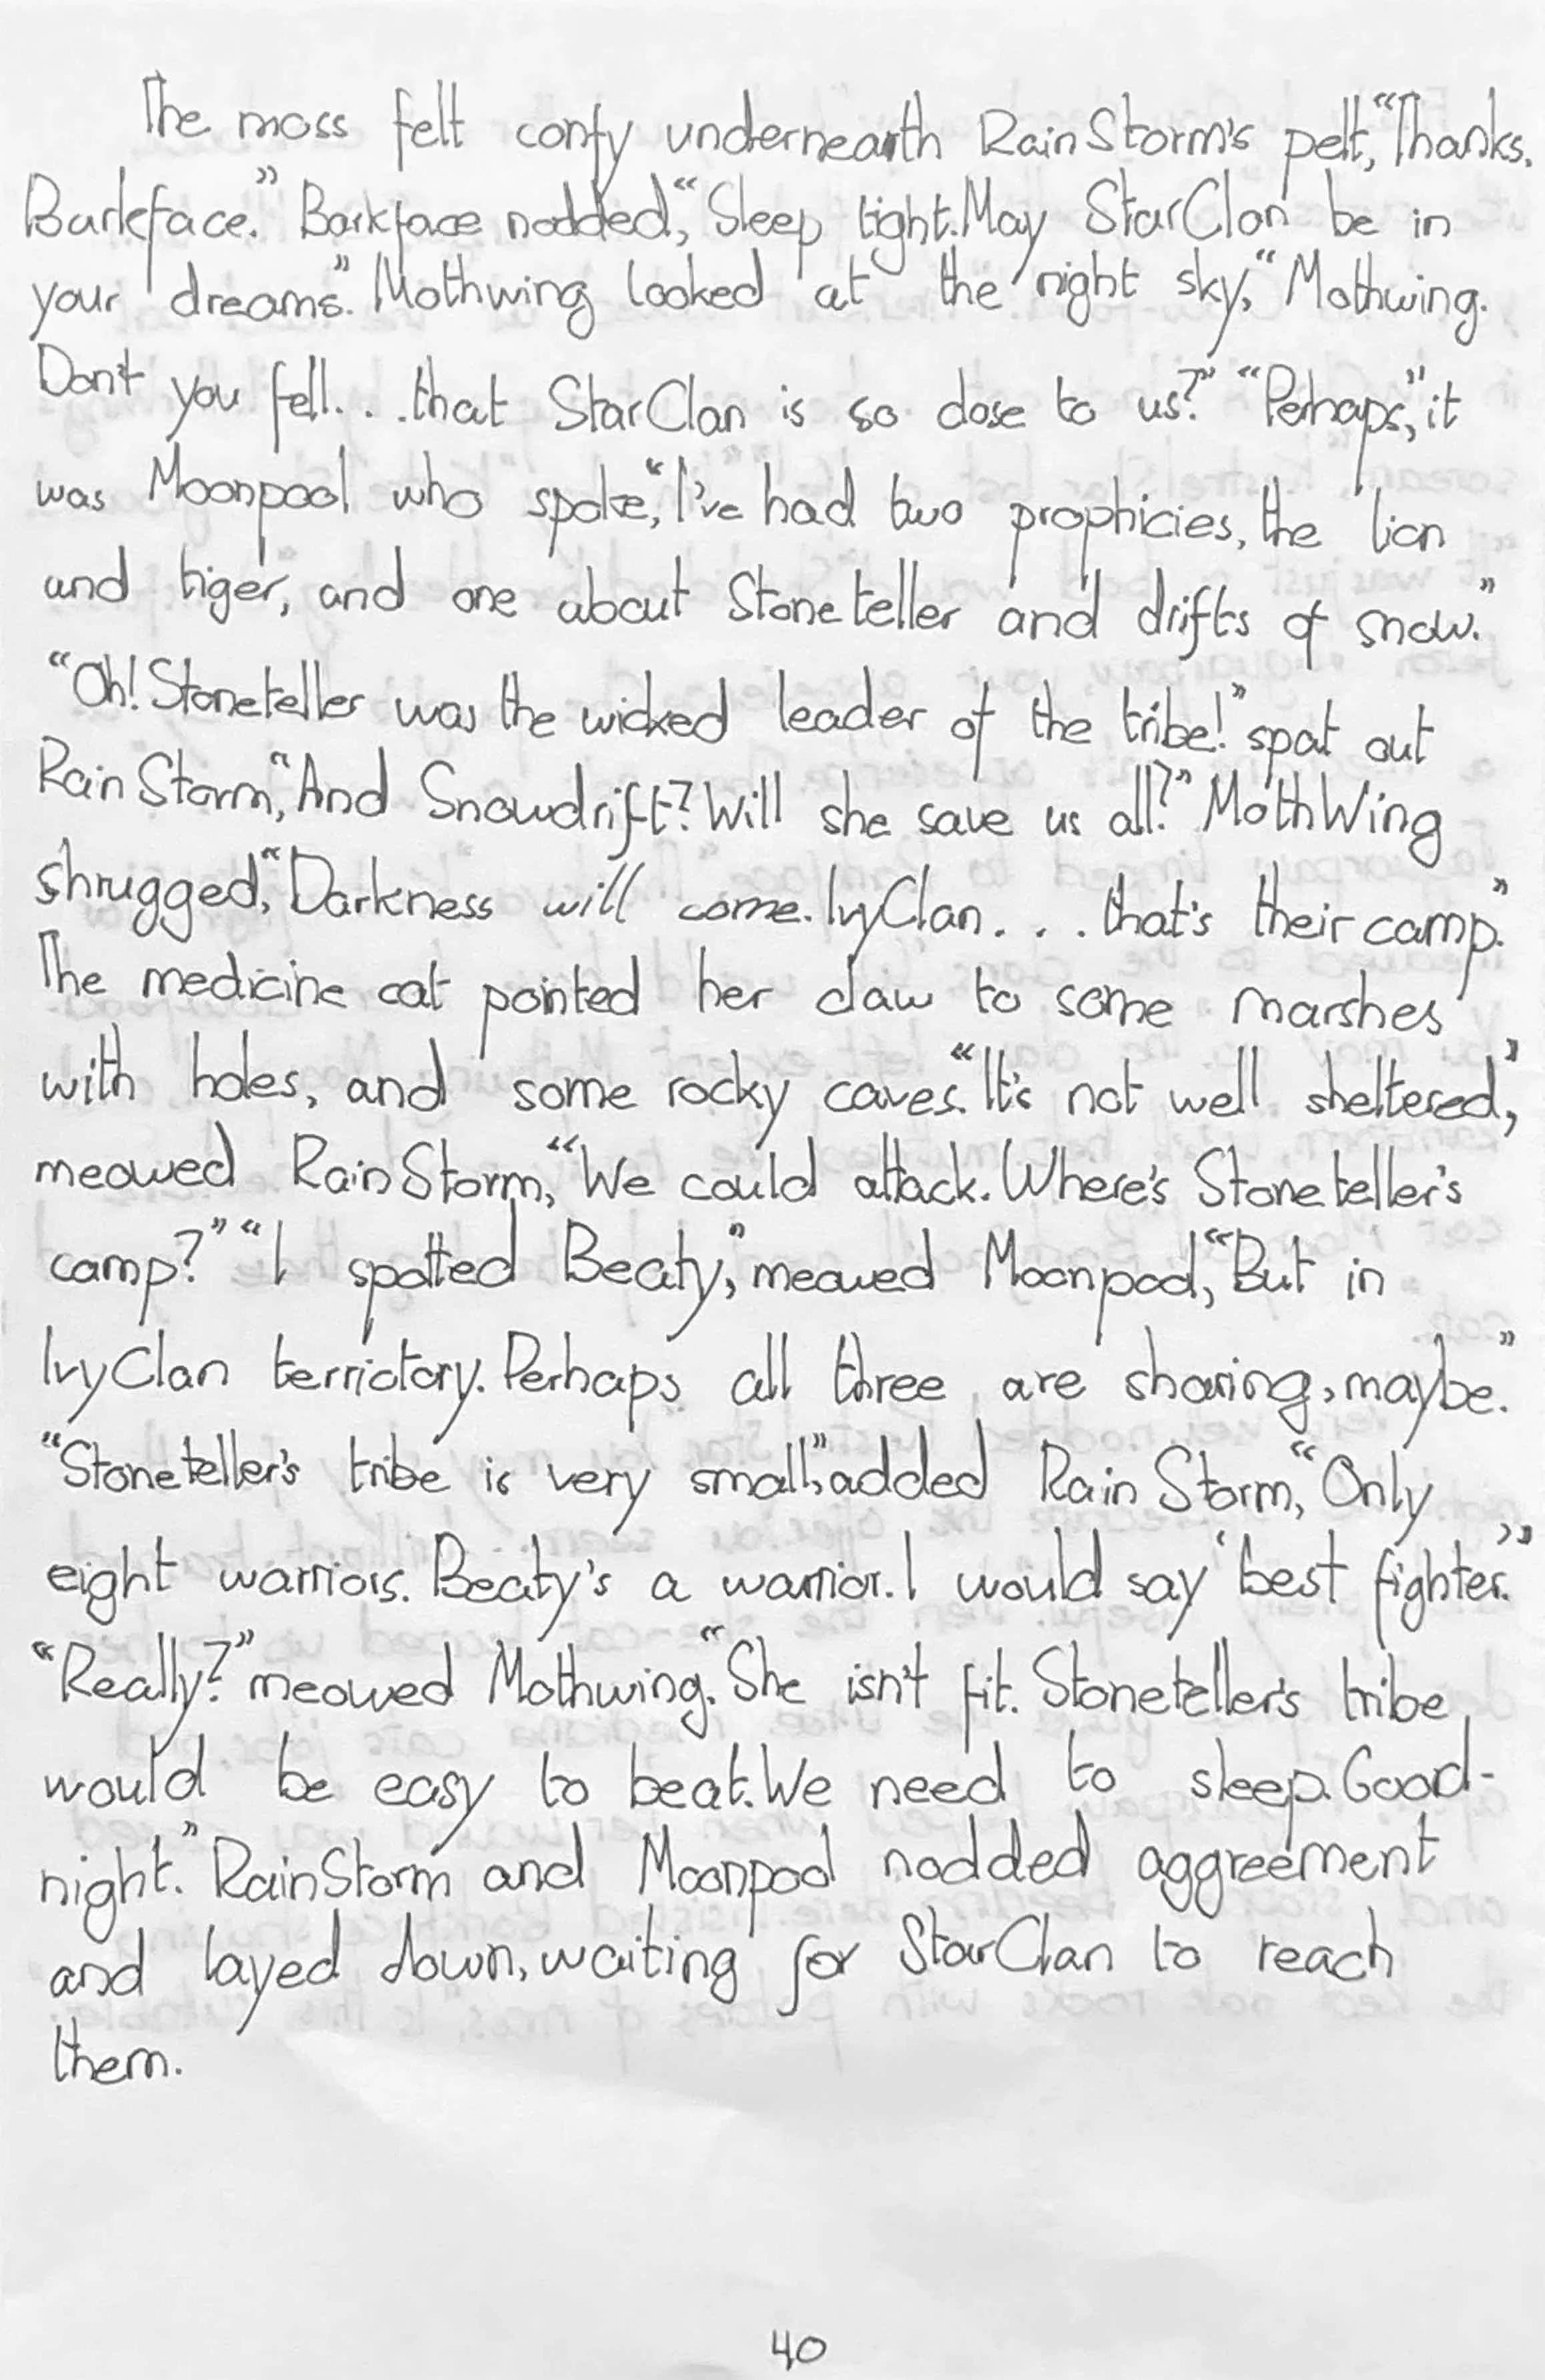 The moss felt comfy underneath RainStorm's pelt, "Thanks.
Barkface." Barkface nodded, "Sleep tight. May StarClan be in
your dreams." Mothwing looked at the night sky, "Mothwing.
Don't you fell. . .that StarClan is so close to us?" "Perhaps," it
was Moonpool who spoke, "I've had two prophicies, the lion
and tiger, and one about Stoneteller and drifts of snow."
"Oh! Stoneteller was the wicked leader of the tribe!" spat out
RainStorm, "And Snowdrift? Will she save us all?" MothWing
shrugged, "Darkness will come. IvyClan. . . that's their camp."
The medicine cat pointed her claw to some marshes
with holes, and some rocky caves. "It's not well sheltered,"
meowed RainStorm, "We could attack. Where's Stoneteller's
camp?" "I spotted Beaty," meowed Moonpool, "But in
IvyClan terriotory. Perhaps all three are sharing, maybe."
"Stoneteller's tribe is very small," added RainStorm, "Only
eight warriors. Beaty's a warrior. I would say 'best fighter.'"
"Really?" meowed Mothwing. "She isn't fit. Stoneteller's tribe
would be easy to beat. We need to sleep. Good-
night." RainStorm and Moonpool nodded aggreement
and layed down, waiting for StarClan to reach
them.
40